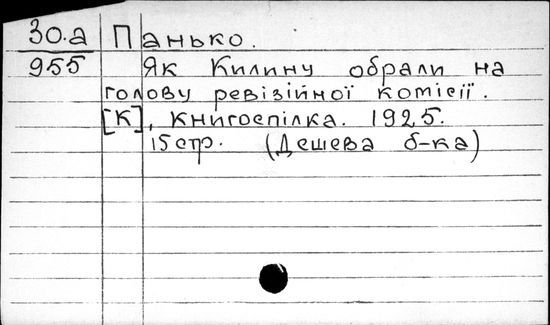 30.а Панько.
955 Як Килину обрали на
голову ревізійної комісії.
[К], Книгоспілка. 1925.
15 стр. (Дешева б-ка)